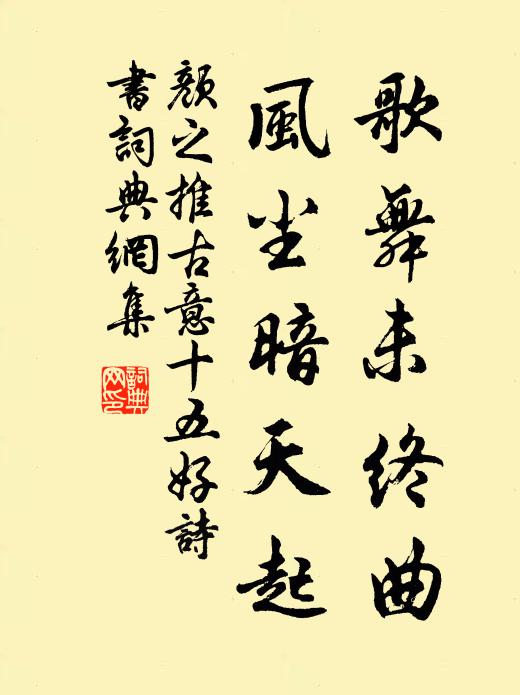 歌舞未终曲
風尘暗天起
顏之推古意十五好詩
書詞典網集
詞典网印